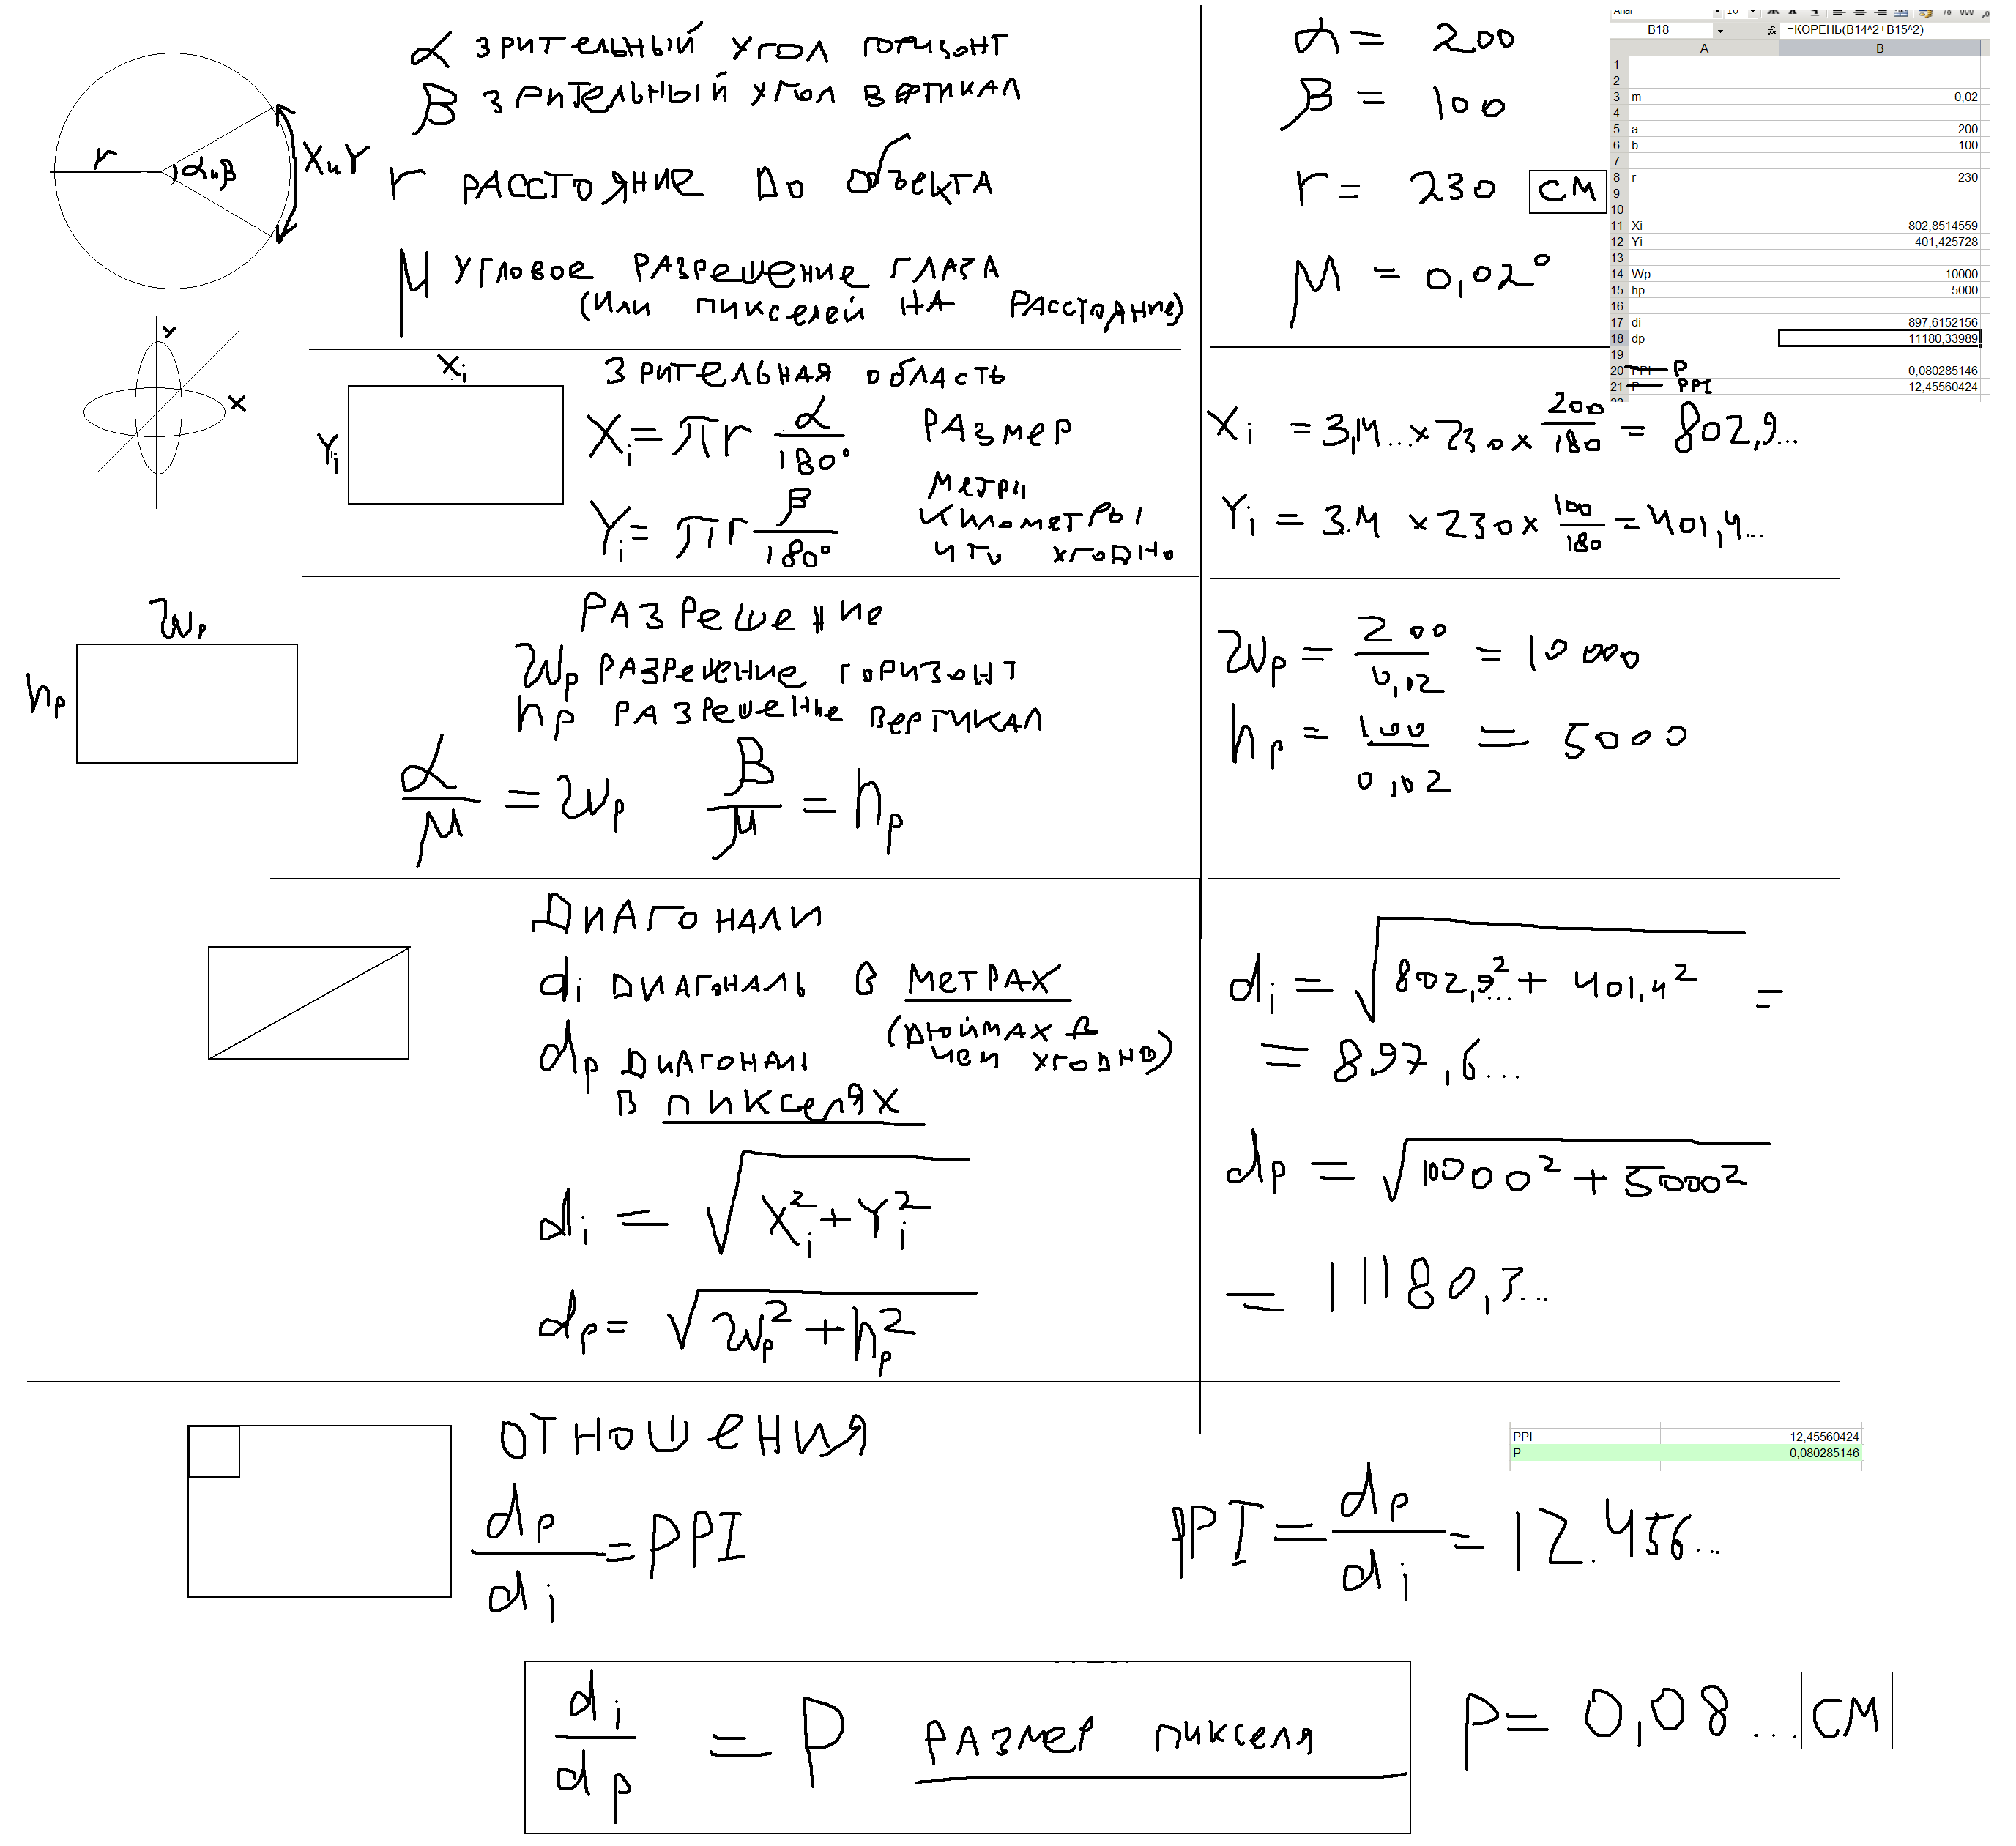 α зрительный угол горизонт
β зрительный угол вертикал
r расстояние до объекта
μ угловое разрешение глаза
(или пикселей на расстояние)
r α и β X и Y
Y
X
α = 200
β = 100
r = 230 см
μ = 0,02°
B18 fx =КОРЕНЬ(B14^2+B15^2)
A B
1
2
3 m 0,02
4
5 a 200
6 b 100
7
8 r 230
9
10
11 Xi 802,8514559
12 Yi 401,425728
13
14 Wp 10000
15 hp 5000
16
17 di 897,6152156
18 dp 11180,33989
19
20 PPI P 0,080285146
21 P PPI 12,45560424
Xi
Yi
Зрительная область
Xi = πr α/180° размер
Yi = πr β/180° метры
километры
что угодно
Xi = 3,14... × 230 × 200/180 = 802,9...
Yi = 3.14 × 230 × 100/180 = 401,4...
Wp
hp
Разрешение
Wp разрешение горизонт
hp разрешение вертикал
α/μ = Wp β/μ = hp
Wp = 200/0,02 = 10000
hp = 100/0,02 = 5000
Диагонали
di диагональ в метрах
(дюймах в
чем угодно)
dp диагональ
в пикселях
di = √(Xi² + Yi²)
dp = √(Wp² + hp²)
di = √(802,9...² + 401,4²) =
= 897,6...
dp = √(10000² + 5000²)
= 11180,3...
Отношения
dp/di = PPI
PPI 12,45560424
P 0,080285146
PPI = dp/di = 12.456...
di/dp = P размер пикселя
P = 0,08... см